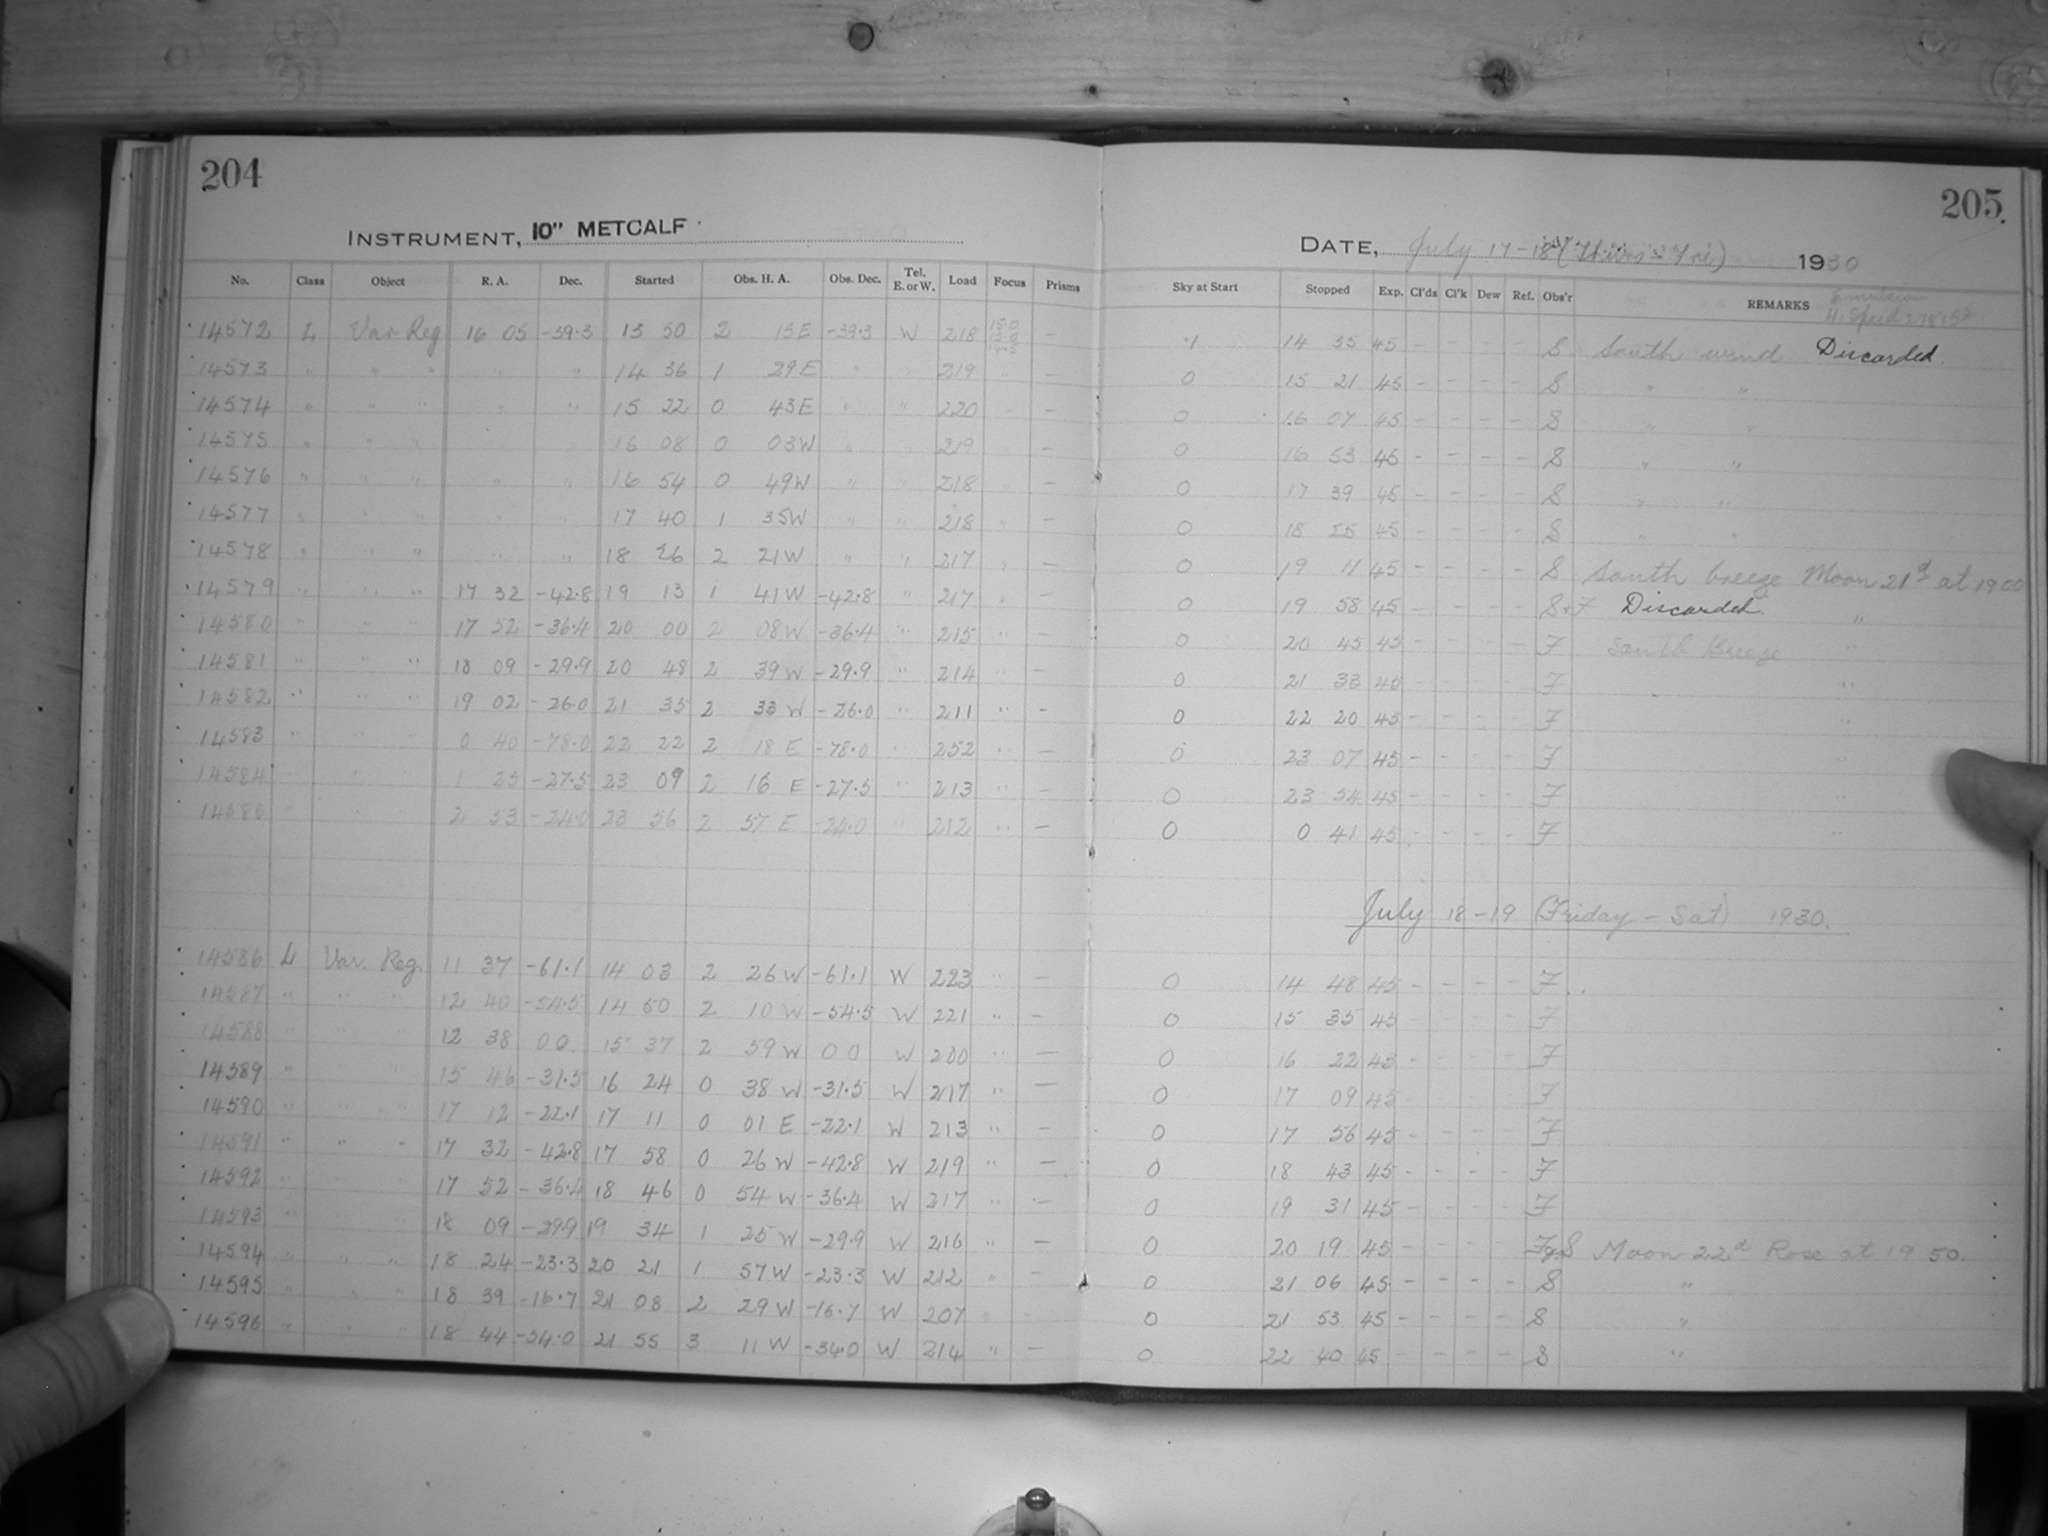 204
205
INSTRUMENT, 10" METCALF
DATE, July 17-18 (Thurs - Fri) 1930
No. Class Object R. A. Dec. Started Obs. H. A. Obs. Dec. Tel. E. or W. Load Focus Prisms Sky at Start Stopped Exp. Cl'ds Cl'k Dew Ref. Obs'r REMARKS Emulsion
14572 L Var Reg 16 05 -39.3 13 50 2 15E -39.3 W 218 — 1 14 35 45 - - - - S South wind Discarded.
14573 " " " " " 14 36 1 29E " " 219 " — 0 15 21 45 - - - - S " "
14574 " " " " " 15 22 0 43E " " 220 " — 0 16 07 45 - - - - S " "
14575 " " " " " 16 08 0 03W " " 219 " — 0 16 53 45 - - - - S " "
14576 " " " " " 16 54 0 49W " " 218 " — 0 17 39 45 - - - - S " "
14577 " " " " " 17 40 1 35W " " 218 " — 0 18 25 45 - - - - S " "
14578 " " " " " 18 26 2 21W " " 217 " — 0 19 11 45 - - - - S South breeze Moon 21d at 1900
14579 " " " 17 32 -42.8 19 13 1 41W -42.8 " 217 " — 0 19 58 45 - - - - S+F Discarded. "
14580 " " " 17 52 -36.4 20 00 2 08W -36.4 " 215 " — 0 20 45 45 - - - - F South Breeze "
14581 " " " 18 09 -29.9 20 48 2 39W -29.9 " 214 " — 0 21 33 45 - - - - F "
14582 " " " 19 02 -26.0 21 35 2 33 W -26.0 " 211 " — 0 22 20 45 - - - - F "
14583 " " " 0 40 -78.0 22 22 2 18 E -78.0 " 252 " — 0 23 07 45 - - - - F "
14584 " " " 1 25 -27.5 23 09 2 16 E -27.5 " 213 " — 0 23 54 45 - - - - F "
14585 " " " 2 53 -24.0 23 56 2 57 E -24.0 " 212 " — 0 0 41 45 - - - - F "
July 18-19 (Friday - Sat) 1930.
14586 L Var. Reg. 11 37 -61.1 14 03 2 26 W -61.1 W 223 " — 0 14 48 45 - - - - F
14587 " " " 12 40 -54.5 14 50 2 10 W -54.5 W 221 " — 0 15 35 45 - - - - F
14588 " " " 12 38 00 15 37 2 59 W 00 W 200 " — 0 16 22 45 - - - - F
14589 " " " 15 46 -31.5 16 24 0 38 W -31.5 W 217 " — 0 17 09 45 - - - - F
14590 " " " 17 12 -22.1 17 11 0 01 E -22.1 W 213 " — 0 17 56 45 - - - - F
14591 " " " 17 32 -42.8 17 58 0 26 W -42.8 W 219 " — 0 18 43 45 - - - - F
14592 " " " 17 52 -36.4 18 46 0 54 W -36.4 W 217 " — 0 19 31 45 - - - - F
14593 " " " 18 09 -29.9 19 34 1 25 W -29.9 W 216 " — 0 20 19 45 - - - - F&S Moon 22d Rose at 19 50.
14594 " " " 18 24 -23.3 20 21 1 57W -23.3 W 212 " — 0 21 06 45 - - - - S "
14595 " " " 18 39 -16.7 21 08 2 29 W -16.7 W 207 " — 0 21 53 45 - - - - S "
14596 " " " 18 44 -34.0 21 55 3 11 W -34.0 W 214 " — 0 22 40 45 - - - - S "